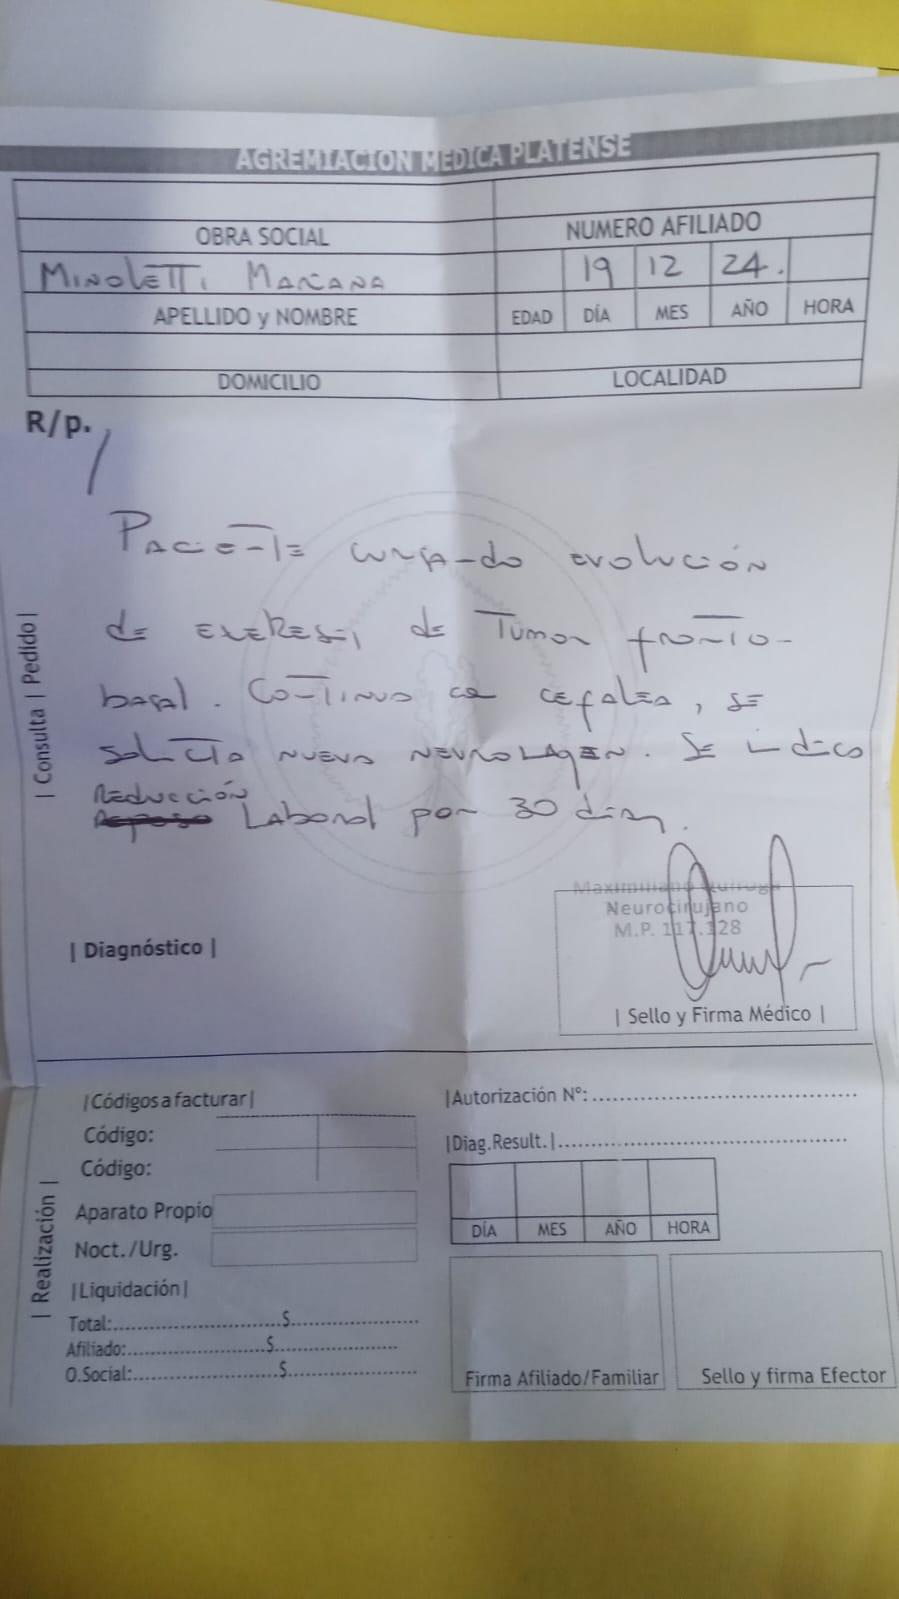 AGREMIACION MEDICA PLATENSE
OBRA SOCIAL NUMERO AFILIADO
Minoletti Mariana 19 12 24.
APELLIDO y NOMBRE EDAD DÍA MES AÑO HORA
DOMICILIO LOCALIDAD
R/p.
| Consulta | Pedido |
Paciente cursando evolución
de exeresis de Tumor fronto-
basal. Continua con cefalea, se
solicita nueva neuroimagen. Se indica
Reducción
Reposo Laboral por 30 dias.
Maximiliano Quiroga
Neurocirujano
M.P. 117.328
| Diagnóstico |
| Sello y Firma Médico |
| Realización |
| Códigos a facturar |
Código:
Código:
Aparato Propio
Noct./Urg.
| Liquidación |
Total:..............................$......................
Afiliado:.........................$......................
O.Social:..........................$.......................
| Autorización N°: ........................................
| Diag.Result. | ...........................................
DÍA MES AÑO HORA
Firma Afiliado/Familiar Sello y firma Efector